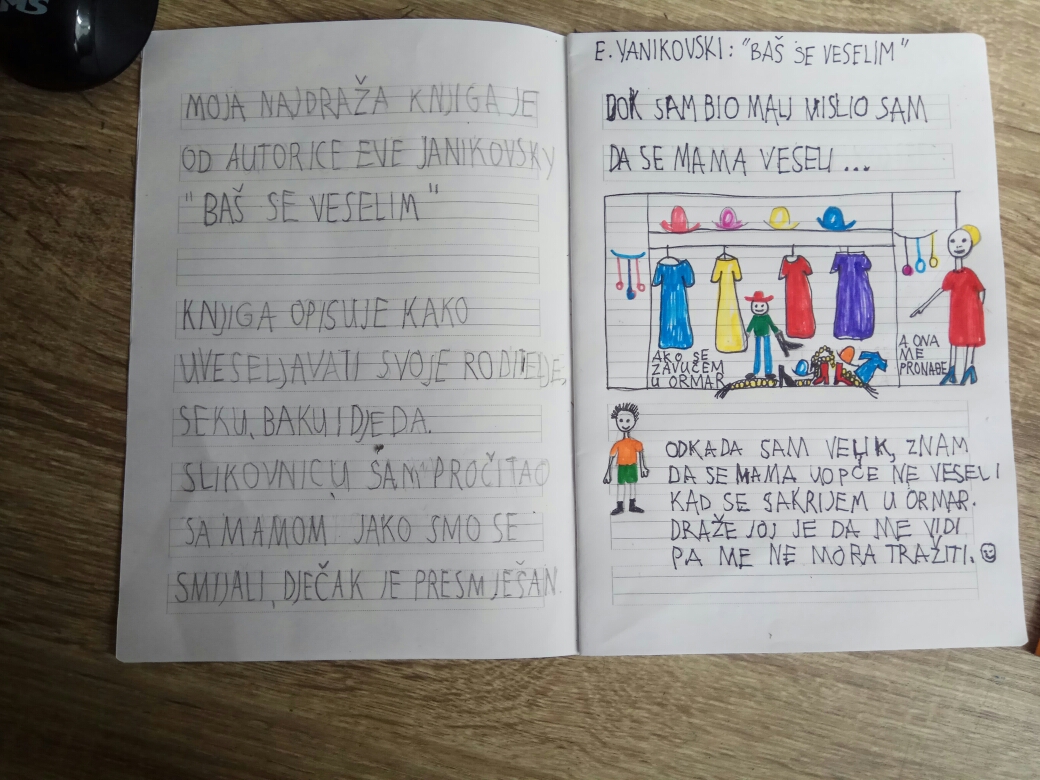 MOJA NAJDRAŽA KNJIGA JE
OD AUTORICE EVE JANIKOVSKY
"BAŠ SE VESELIM"
KNJIGA OPISUJE KAKO
UVESELJAVATI SVOJE RODITELJE,
SEKU, BAKU I DJEDA.
SLIKOVNICU SAM PROČITAO
SA MAMOM. JAKO SMO SE
SMIJALI, DJEČAK JE PRESMJEŠAN.
E. YANIKOVSKI: "BAŠ SE VESELIM"
DOK SAM BIO MALI MISLIO SAM
DA SE MAMA VESELI ...
AKO SE
ZAVUČEM
U ORMAR
A ONA
ME
PRONAĐE
ODKADA SAM VELIK, ZNAM
DA SE MAMA UOPČE NE VESELI
KAD SE SAKRIJEM U ORMAR.
DRAŽE JOJ JE DA ME VIDI
PA ME NE MORA TRAŽITI. ☺